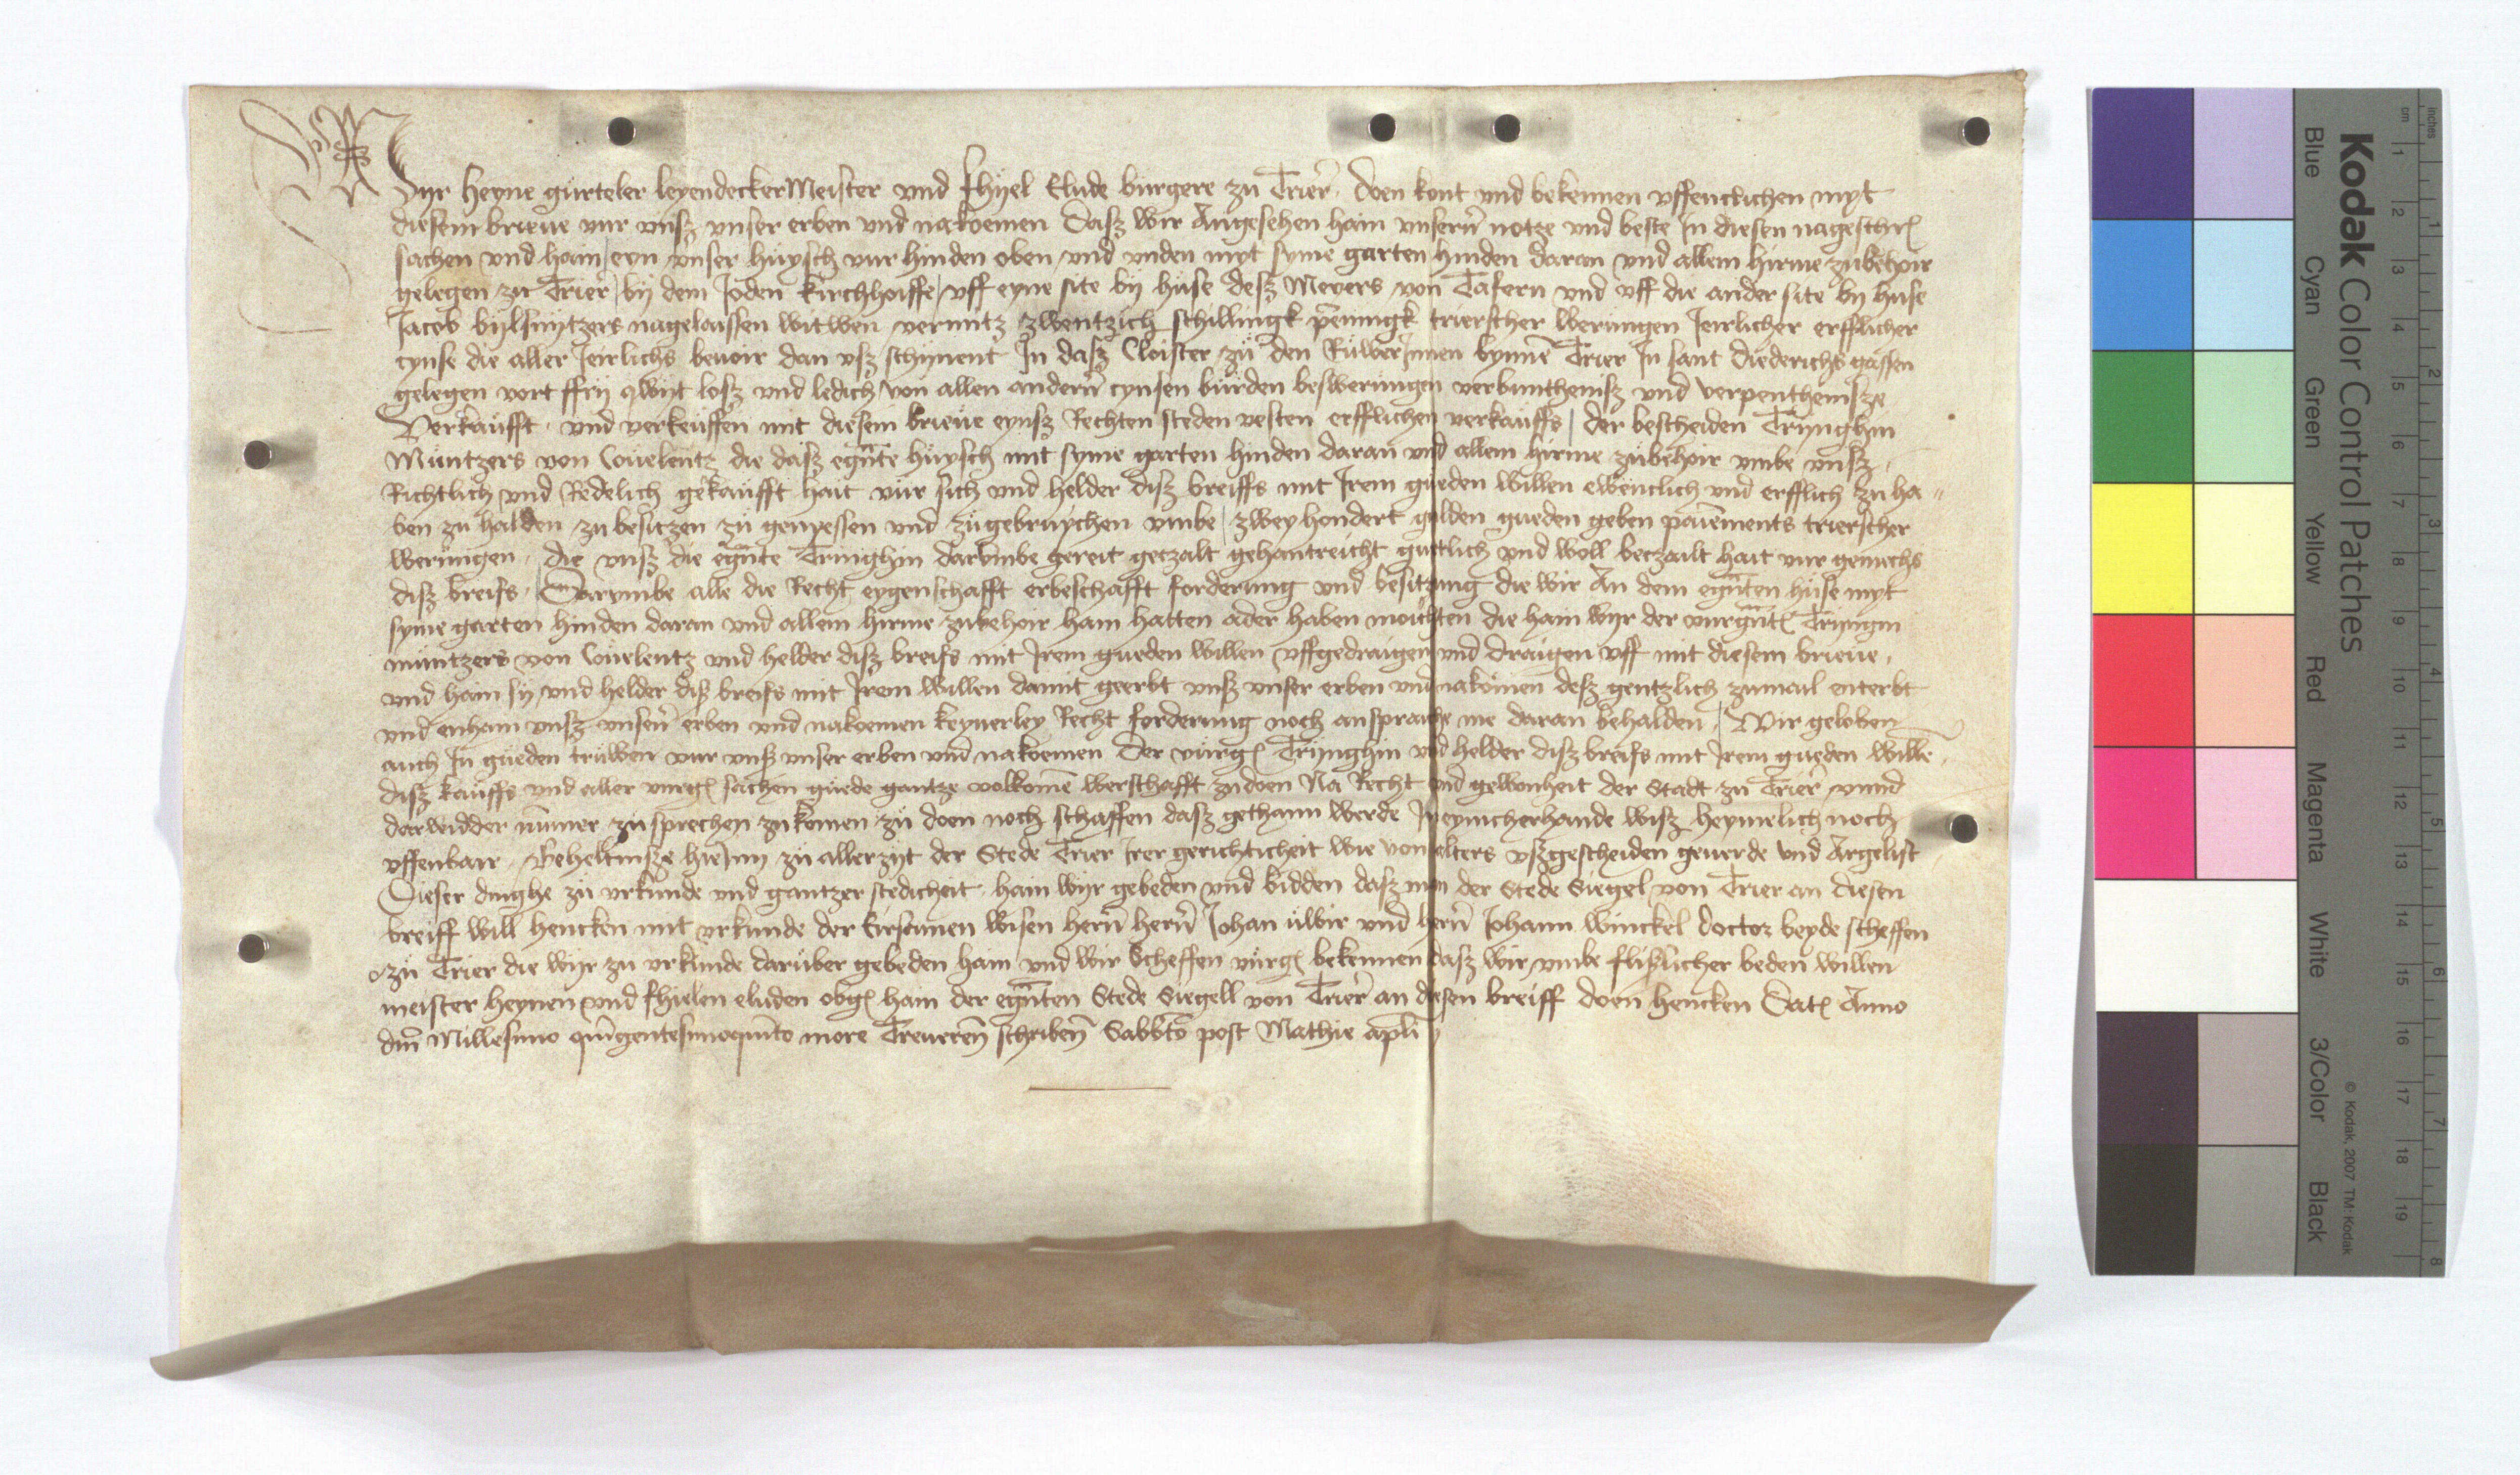 Wyr heyne gurteler leyendecker Meister vnd Thyel Elude burgere zu Trier doen kont vnd bekennen vffentlichen myt
diesem brieue vur vnsz vnser erben vnd nakoemen Dasz wir Angesehen hain vnsern notze vnd beste In diesen nageschr
sachen vnd hain eyn vnser huysch vur hinden oben vnd vnden myt syme garten hinden daran vnd allem hirme zubehoir
gelegen zu Trier by dem Joden kirchhoiffe vff eyne site by huse desz Meyers von Tafern vnd vff die ander site by huse
Jacob bylsnytzers nagelaissen witwen vermitz zwentzich schillingk pennigk trierscher werungen Jerlicher erfflicher
cynse die aller Jerlichs beuoir dan vsz schynent In dasz Cloister zu den Ruwerinnen bynne Trier In sant diederichs gassen
gelegen vort ffry qwijt losz vnd ledich von allen andern cynsen burden beswerungen verbunthenisz vnd verpenthenisze
Verkaufft vnd verkeuffen mit diesem brieue eynsz Rechten steden vesten erfflichen verkauffs der bescheiden Trynghin
Muntzers von Couelentz die dasz egnte huysch mit syme garten hinden daran vnd allem hirme zubehoir vmbe vnsz
Richtlich vnd Redelich gekaufft hait vur sich vnd helder disz breiffs mit Jrem gueden willen ewentlich vnd erfflich zu ha
ben zu halden zu besitzen zu genyessen vnd zugebruychen vmbe zwey hondert gulden gueden geben pauements trierscher
werungen die vnsz die egnte Trynghin darvmbe gereit geczalt gehantreicht guetlich vnd woll beczailt hait vur gemechs
disz breifs Darvmbe alle die Recht eygenschafft erbeschafft forderung vnd besitzung die wir An dem egnten huse myt
syme garten hinden daran vnd allem hirme zubehoir hain hatten ader haben moichten die hain wyr der vurgnt Tryngin
muntzers von Couelentz vnd helder disz breifs mit Jrem gueden willen vffgedraigen vnd draigen vff mit diesem brieue
vnd hain sy vnd helder disz breifs mit Jrem willen damit geerbt vnsz vnser erben vnd nakomen desz gentzlich zumail enterbt
vnd enhain vnsz vnsern erben vnd nakoemen keynerley Recht forderung noch ansprache me daran behalden Wir geloben
auch In gueden truwen vur vnsz vnser erben vnd nakoemen der vurg Trynghin vnd helder disz breifs mit Jrem gueden wille
disz kauffs vnd aller vurg sachen guede gantze volkome werschafft zu doen Na Recht vnd gewonheit der Stadt zu Trier vnnd
darwidder nummer zu sprechen zu komen zu doen noch schaffen dasz gethann werde In eynicherhande wisz heymelich noch
vffenbarr Beheltnisze hieInn zu allerzyt der Stede Trier Irer gerichticheit wie von alters vszgescheiden geuerde vnd Argelist
Dieser dinghe zu vrkunde vnd gantzer stedicheit hain wyr gebeden vnd bidden dasz man der Stede Siegel von Trier an diesen
breiff will hencken mit vrkunde der Ersamen wisen hern hern Johan ulwir vnd hern Johann winckel doctor beyde scheffen
zu Trier die wyr zu vrkunde daruber gebeden hain vnd wir Scheffen vurg bekennen dasz wir vmbe fliszlicher beden willen
meister heynen vnd thielen eluden obg hain der egnten Stede Siegell von Trier an diesen breiff doen hencken Dat Anno
dni Millesimo quingentesimoquinto more Treueren scriben Sabbto post Mathie apli
Kodak Color Control Patches
Blue Cyan Green Yellow Red Magenta White 3/Color Black
© Kodak, 2007 TM: Kodak
cm 1 2 3 4 5 6 7 8 9 10 11 12 13 14 15 16 17 18 19
inches 1 2 3 4 5 6 7 8